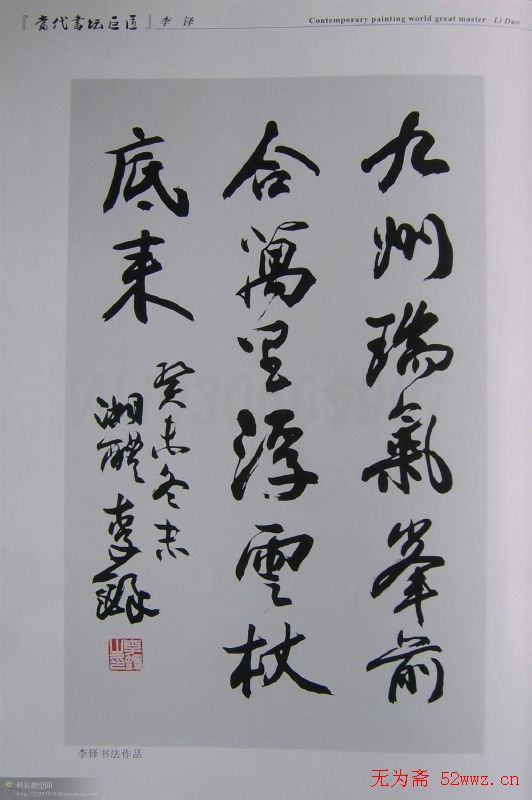 『當代書坛巨匠』李 铎
Contemporary painting world great master · Li Duo
九州瑞氣峯前
合萬里浮雲杖
底来
癸未冬末
湘醴李鐸
李铎书法作品
无为斋 52wwz.cn